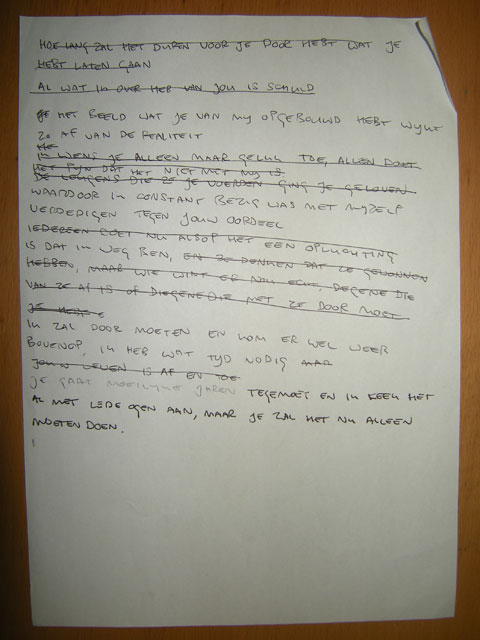 HOE LANG ZAL HET DUREN VOOR JE DOOR HEBT WAT JE
HEBT LATEN GAAN
AL WAT IK OVER HEB VAN JOU IS SCHULD
JE HET BEELD WAT JE VAN MY OPGEBOUWD HEBT WYKT
ZO AF VAN DE REALITEIT
HE
IK WENS JE ALLEEN MAAR GELUK TOE, ALLEN DOET
HET PYN DAT HET NIET MET MY IS
DE LEUGENS DIE ZE JE VOERDEN GING JE GELOVEN
WAARDOOR IK CONSTANT BEZIG WAS MET MYZELF
VERDEDIGEN TEGEN JOUW OORDEEL
IEDEREEN DOET NU ALSOF HET EEN OPLUCHTING
IS DAT IK WEG BEN, EN ZE DENKEN DAT ZE GEWONNEN
HEBBEN, MAAR WIE WINT ER NOU ECHT, DEGENE DIE
VAN ZE AF IS OF DIEGENE DIE MET ZE DOOR MOET
JE
IK ZAL DOOR MOETEN EN KOM ER WEL WEER
BOVENOP, IK HEB WAT TYD NODIG MAAR
JOUW LEVEN IS AF EN TOE
JE GAAT MOEILYKE JAREN TEGEMOET EN IK KEEK HET
AL MET LEDE OGEN AAN, MAAR JE ZAL HET NU ALLEEN
MOETEN DOEN.